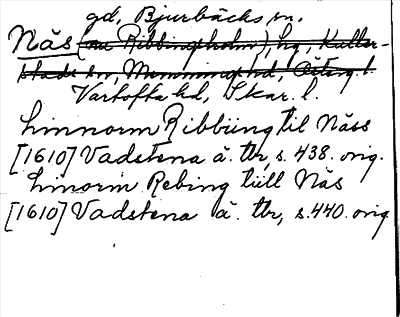 gd, Bjurbäcks sn.
Näs (nu Ribbingsholm), hg, Kuller-
stads sn, Memmings hd, Österg. l.
Vartofta hd, Skar. l.
Linnorm Ribbiing til Näss
[1610] Vadstena ä. tbr, s. 438. orig.
Linorm Rebing tiill Näs
[1610] Vadstena ä. tbr, s. 440. orig